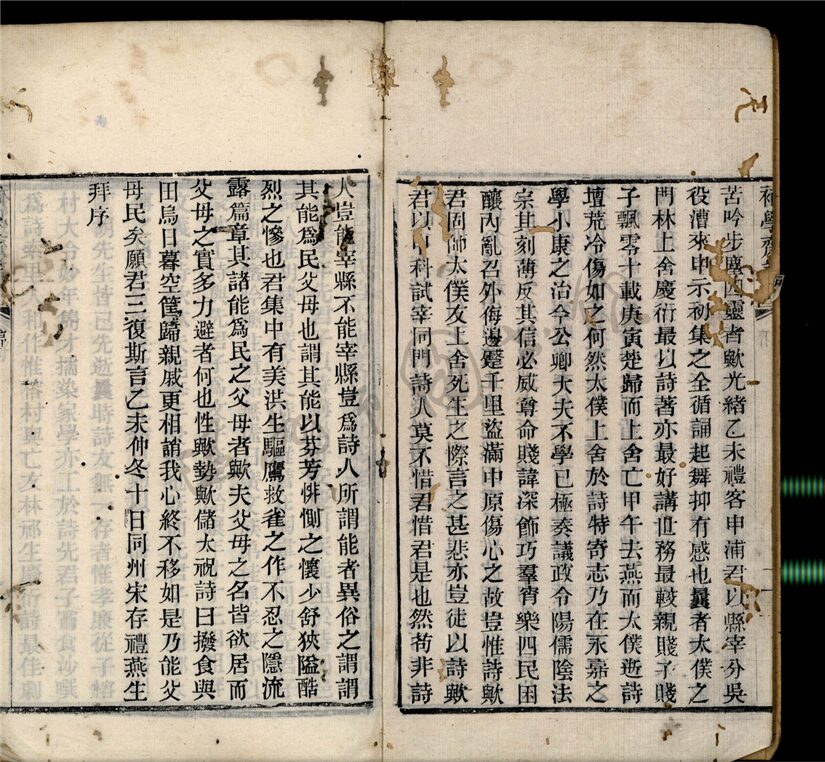 苦吟步塵四靈者歟光緒乙未禮客申浦君以縣宰分吳
役漕來申示初集之全循誦起舞抑有感也曩者太僕之
門林上舍慶衍最以詩著亦最好講世務最較親賤子賤
子飄零十載庚寅楚歸而上舍亡甲午去燕而太僕逝詩
壇荒冷傷如之何然太僕上舍於詩特寄志乃在永嘉之
學小康之治今公卿大夫不學已極奏議政令陽儒陰法
宗其刻薄反其信必威尊命賤諱深飾巧羣宵樂四民困
釀內亂召外侮邊蹙千里盜滿中原傷心之故豈惟詩歟
君固師太僕友上舍死生之際言之甚悲亦豈徒以詩歟
君以科試宰同門詩人莫不惜君惜君是也然苟非詩
人豈能宰縣不能宰縣豈爲詩人所謂能者異俗之謂謂
其能爲民父母也謂其能以芬芳悱惻之懷少舒狹隘酷
烈之慘也君集中有美洪生驅鷹救雀之作不忍之隱流
露篇章其諸能爲民之父母者歟夫父母之名皆欲居而
父母之實多力避者何也性歟勢歟儲太祝詩曰撥食與
田烏日暮空筐歸親戚更相誚我心終不移如是乃能父
母民矣願君三復斯言乙未仲冬十日同州宋存禮燕生
拜序